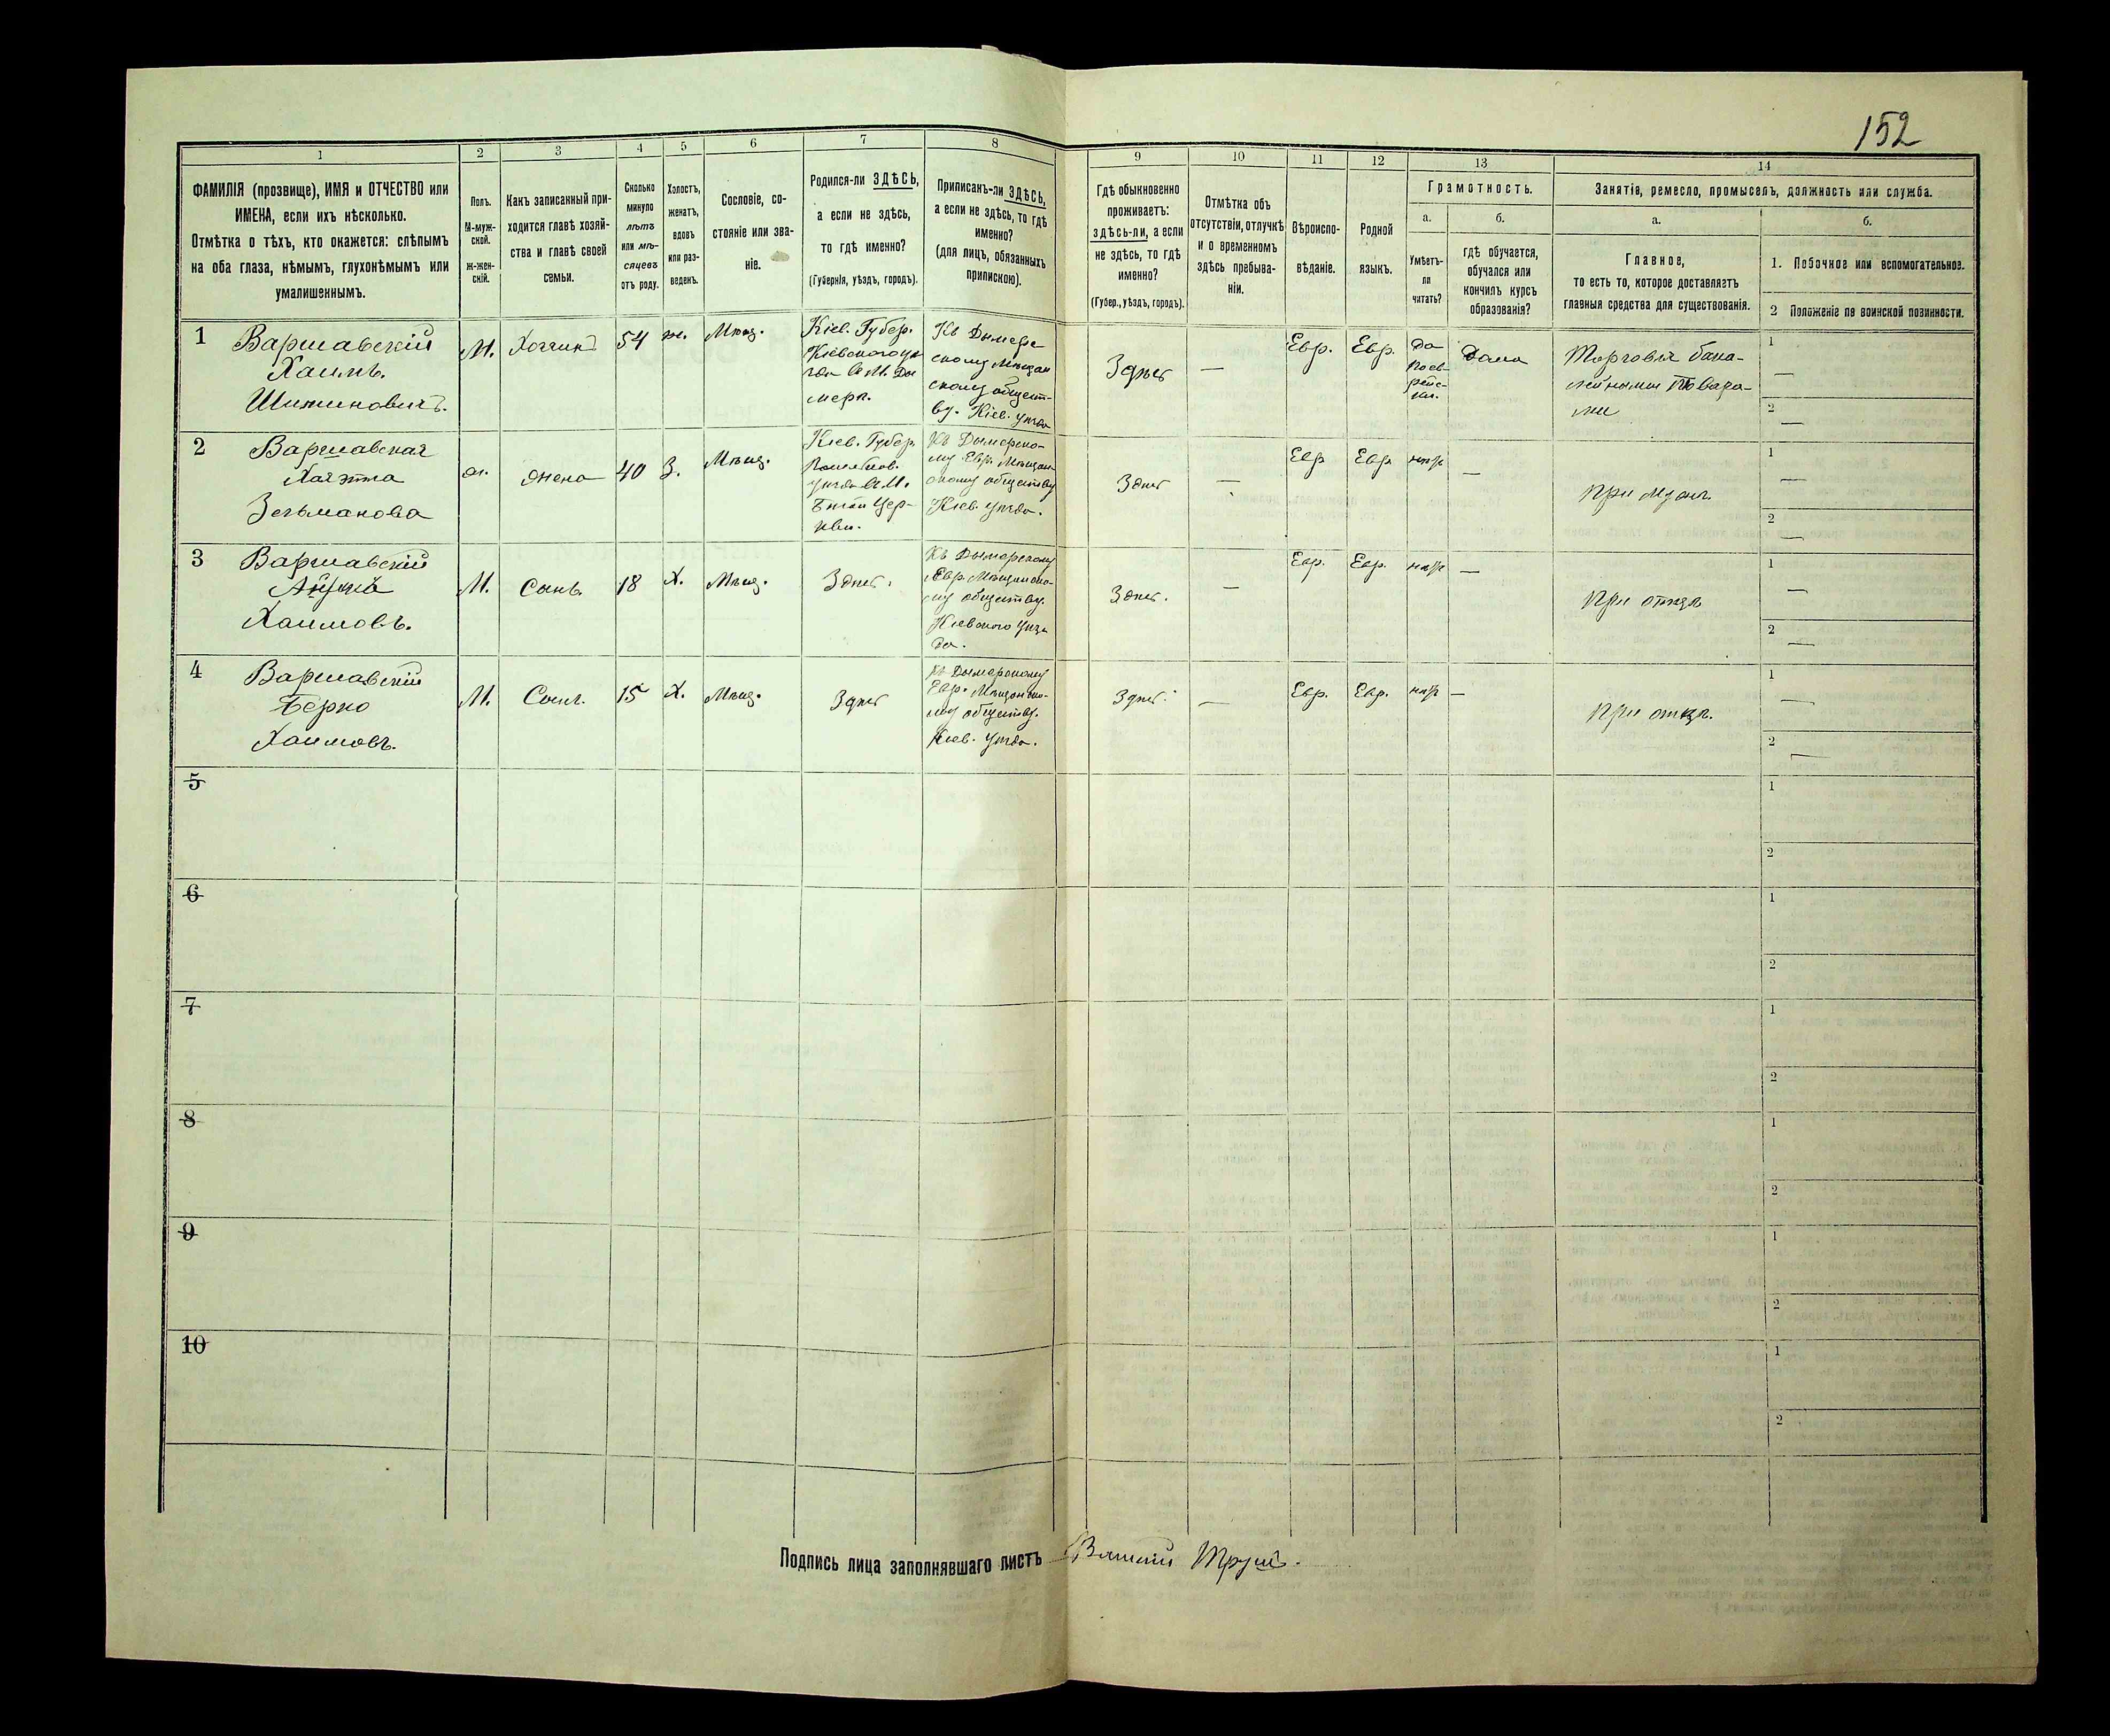 152
1
2
3
4
5
6
7
8
9
10
11
12
13
14
ФАМИЛІЯ (прозвище), ИМЯ и ОТЧЕСТВО или
ИМЕНА, если ихъ нѣсколько.
Отмѣтка о тѣхъ, кто окажется: слѣпымъ
на оба глаза, нѣмымъ, глухонѣмымъ или
умалишеннымъ.
Полъ.
М-муж-
ской.
Ж-жен-
скій.
Какъ записанный при-
ходится главѣ хозяй-
ства и главѣ своей
семьи.
Сколько
минуло
лѣтъ
или мѣ-
сяцевъ
отъ роду.
Холостъ,
женатъ,
вдовъ
или раз-
веденъ.
Сословіе, со-
стояніе или зва-
ніе.
Родился-ли ЗДѢСЬ,
а если не здѣсь,
то гдѣ именно?
(Губернія, уѣздъ, городъ).
Приписанъ-ли ЗДѢСЬ,
а если не здѣсь, то гдѣ
именно?
(для лицъ, обязанныхъ
припискою).
Гдѣ обыкновенно
проживаетъ:
здѣсь-ли, а если
не здѣсь, то гдѣ
именно?
(Губер., уѣздъ, городъ).
Отмѣтка объ
отсутствіи, отлучкѣ
и о временномъ
здѣсь пребыва-
ніи.
Вѣроиспо-
вѣданіе.
Родной
языкъ.
Грамотность.
а.
Умѣетъ-
ли
читать?
б.
гдѣ обучается,
обучался или
кончилъ курсъ
образованія?
Занятіе, ремесло, промыселъ, должность или служба.
а.
Главное,
то есть то, которое доставляетъ
главныя средства для существованія.
б.
1. Побочное или вспомогательное.
2 Положеніе по воинской повинности.
1
Варшавскій
Хаимъ
М.
54
ж.
Мѣщ.
Кіев. Губер.
Къ Дымер
скому Мѣщан
скому общест-
ву. Кіев. уѣзда
Здѣсь
—
Евр.
Евр.
Да
по ев-
рейс-
ки.
Дома
Торговля бака-
лейными Товара-
ми
1
—
2
—
2
Варшавская
Зельманова
ж.
жена
40
З.
Мѣщ.
Кіев. Губер.
уѣзда в М.
Бѣлой Цер-
кви.
Къ Дымерско-
му Евр. Мѣщан-
скому обществу
Кіев. уѣзда.
Здѣсь
—
Евр
Евр.
—
При мужѣ.
1
—
2
—
3
Варшавскій
Хаимовъ.
М.
Сынъ.
18
Х.
Мѣщ.
Здѣсь.
Къ Дымерскому
Евр. Мѣщанско-
му обществу.
Кіевскаго уѣз-
да.
Здѣсь.
—
Евр.
Евр.
—
При отцѣ
1
—
2
—
4
Варшавскій
Берко
Хаимовъ.
М.
Сынъ.
15
Х.
Мѣщ.
Здѣсь
Къ Дымерскому
Евр. Мѣщанско-
му обществу.
Кіев. уѣзда.
Здѣсь.
—
Евр.
Евр.
—
При отцѣ.
1
—
2
—
5
1
2
6
1
2
7
1
2
8
1
2
9
1
2
10
1
2
Подпись лица заполнявшаго листъ